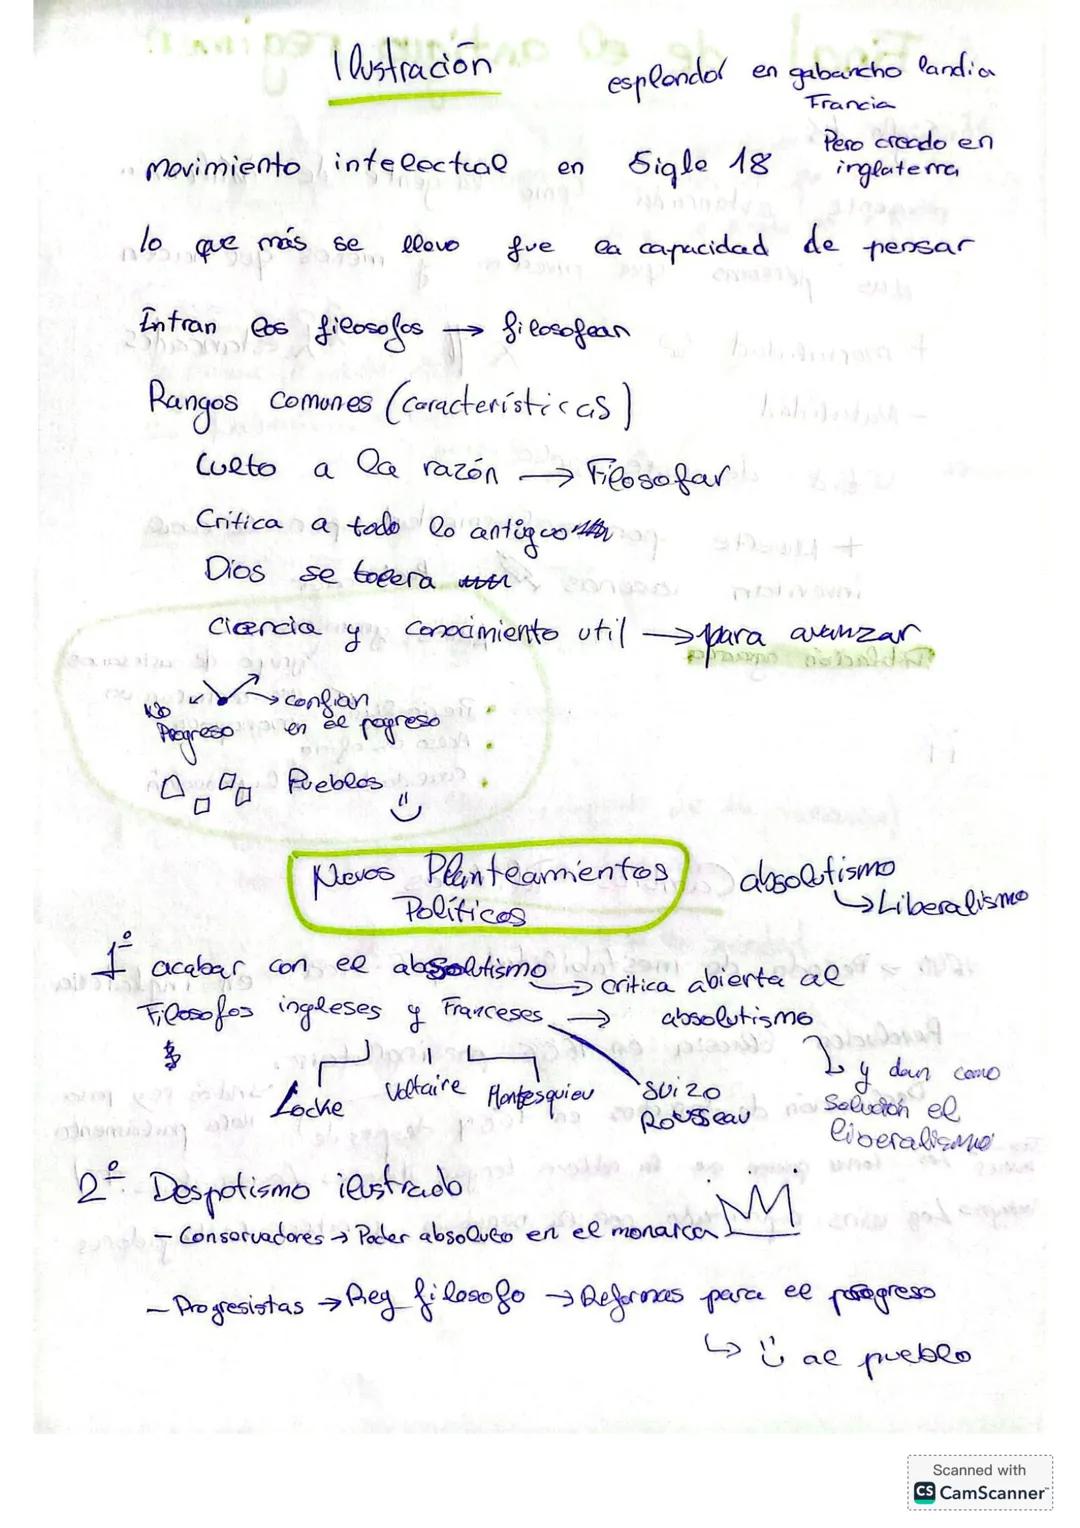 Ilustración
esplendor en gabancho landia
Francia
Pero creado en
inglaterra
movimiento intelectual en Sigle 18
lo que más se llevo fue la capacidad de pensar
Entran los filosofos → filosofean
Rangos comunes (características)
Culto a la razón → Filosofar
Critica a todo lo antiguo
Dios se tolera
ciencia y conocimiento util → para avanzar
No → confian
Progreso en el pogreso
Pueblos
Nevos Planteamientos
Políticos
absolutismo
↳ Liberalismo
1º acabar con el absolutismo → critica abierta al
Filosofos ingleses y Franceses → absolutismo
Locke Voltaire Montesquieu suizo
Rousseau
↳ y dan como
Solución el
liberalismo
2º Despotismo ilustrado
- Conservadores → Poder absoluto en el monarca
- Progresistas → Rey filosofo → Reformas para el progreso
↳ al pueblo
Scanned with
CS CamScanner